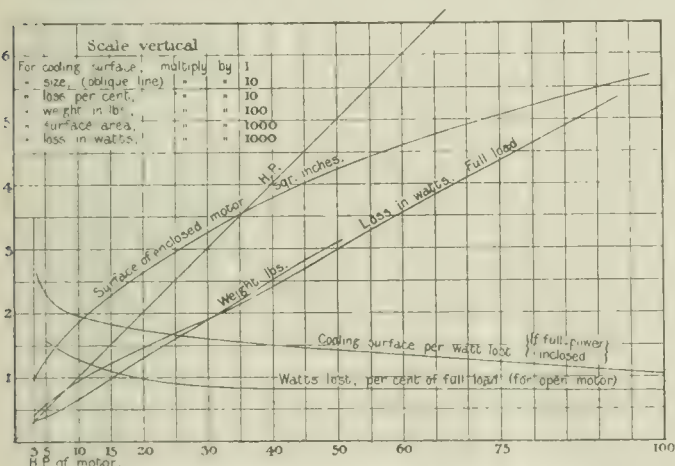 Scale vertical
For cooling surface, multiply by 1
" size, (oblique line) " " 10
" loss per cent, " " 10
" weight in lbs, " " 100
" surface area, " " 1000
" loss in watts, " " 1000
6
5
4
3
2
1
H.P.
Sqr. inches.
Surface of enclosed motor
Loss in watts. Full load
Weight lbs.
Cooling surface per watt lost {If full power inclosed}
Watts lost, per cent of full load (for open motor)
3 5 10 15 20 25 30 40 50 60 75 100
H.P. of motor